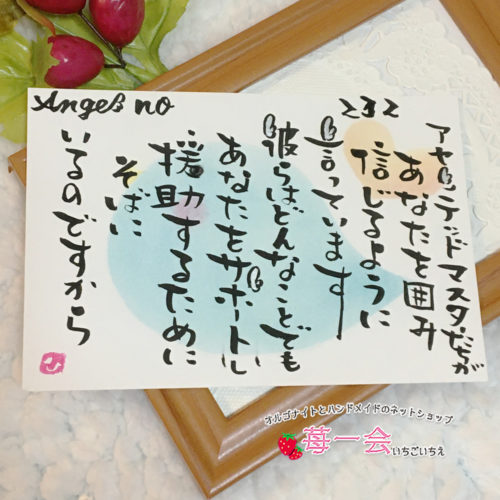 Angel no 232
アセンテッドマスターたちが
あなたを囲み
信じるように
言っています
彼らはどんなことでも
あなたをサポートし
援助するために
そばに
いるのですから
オルゴナイトとハンドメイドのネットショップ
苺一会いちごいちえ